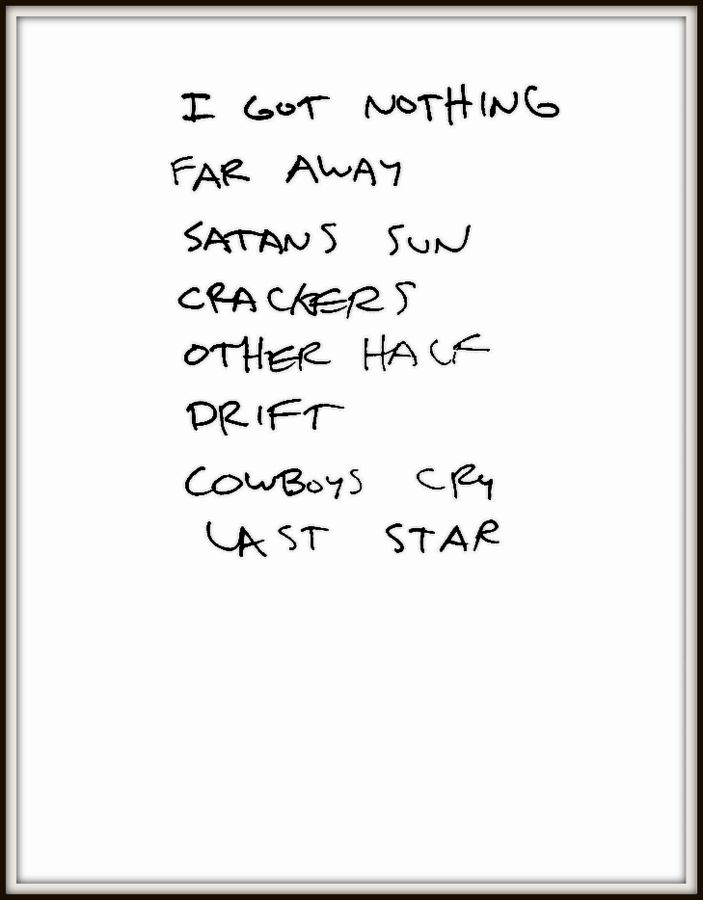 I GOT NOTHING
FAR AWAY
SATANS SUN
CRACKERS
OTHER HALF
DRIFT
COWBOYS CRY
LAST STAR